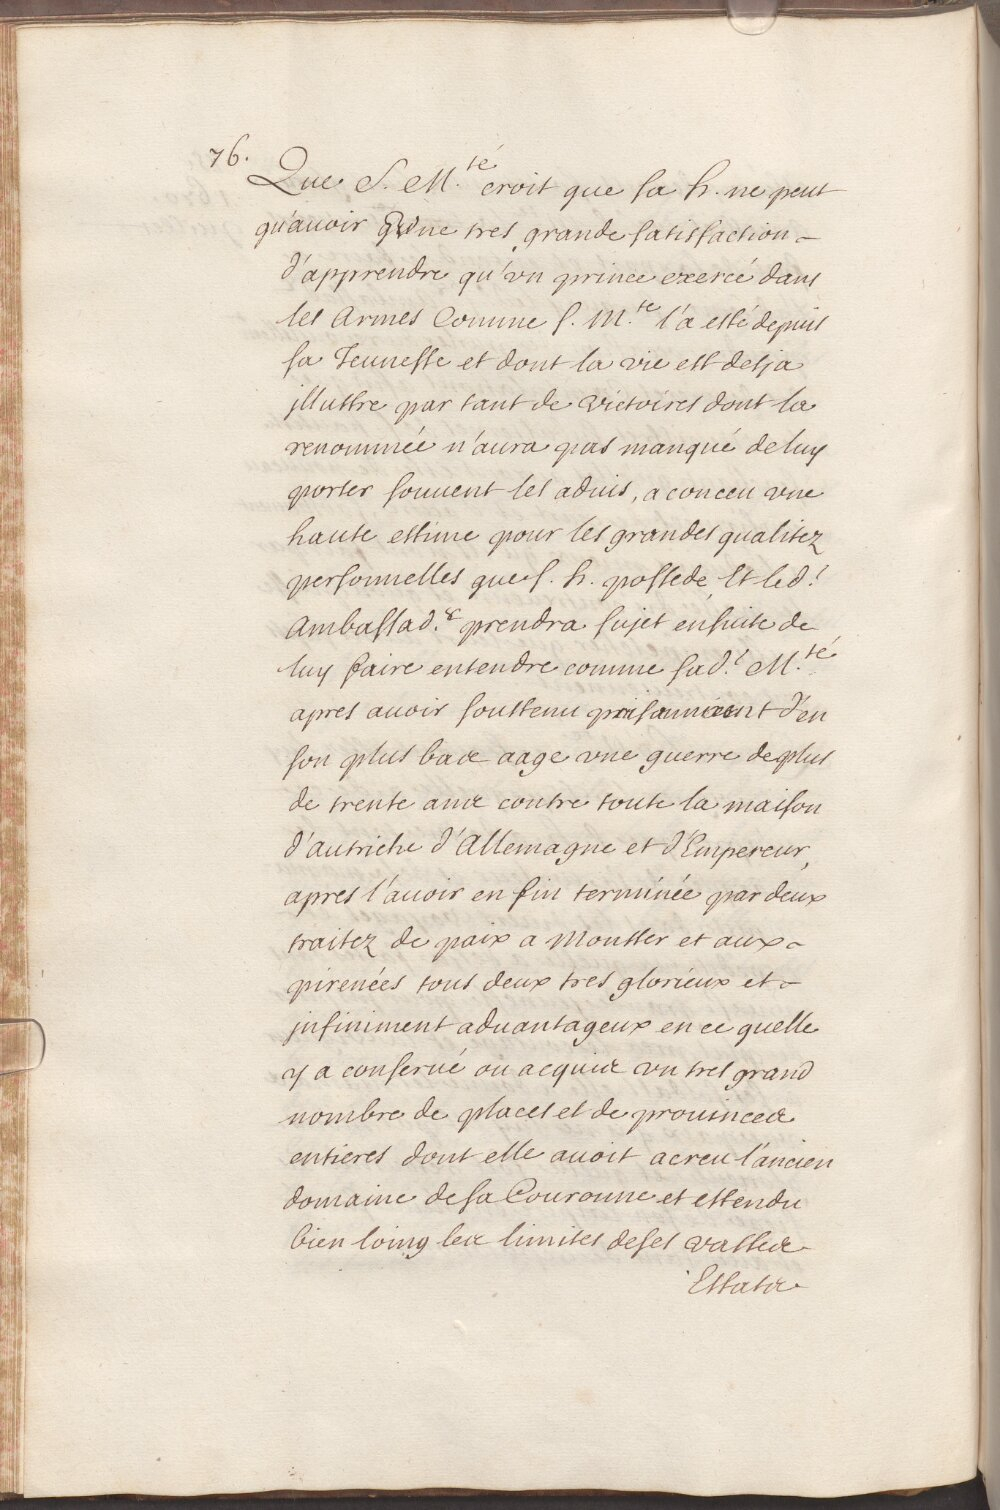 76.
Que S. M.té croit que sa h. ne peut
qu'auoir qu'vne tres grande satisfaction
d'apprendre qu'vn prince exercé dans
les Armes Comme S. M.te l'a esté depuis
sa Jeunesse et dont la vie est desja
jllustre par tant de victoires dont la
renommée n'aura pas manqué de luy
porter souuent les aduis, a conceu vne
haute estime pour les grandes qualitez
personnelles que S. h. possede, Et led.t
Ambassad.r prendra sujet ensuite de
luy faire entendre comme sad.t M.té
apres auoir soustenu puissamment d'en
son plus bas aage vne guerre de plus
de trente ans contre toute la maison
d'autriche d'Allemagne et d'Empereur,
apres l'auoir en fin terminée par deux
traitez de paix a Monster et aux
pirenées tous deux tres glorieux et
jnfiniment aduantageux en ce quelle
y a conserué ou acquis vn tres grand
nombre de places et de prouinces
entieres dont elle auoit acreu l'ancien
domaine de sa Couronne et estendu
bien loing les limites de ses vastes
Estats